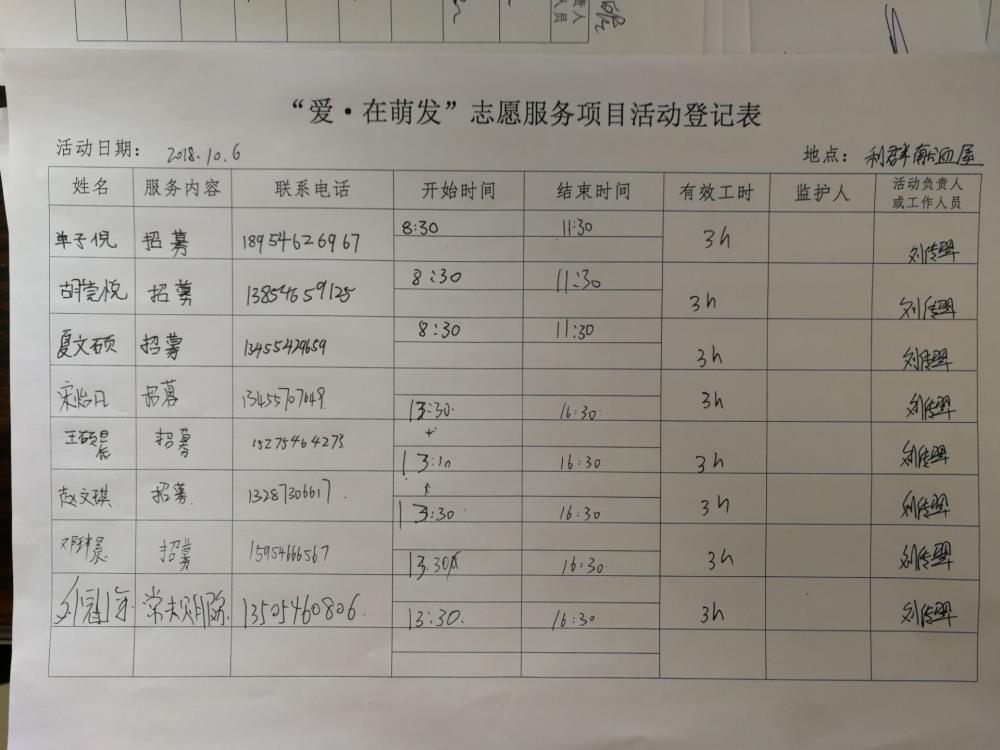 责人
人员
“爱·在萌发”志愿服务项目活动登记表
活动日期： 2018.10.6 地点： 利群献血屋
姓名 服务内容 联系电话 开始时间 结束时间 有效工时 监护人 活动负责人
或工作人员
单子倪 招募 18954626967 8:30 11:30 3h
胡莞悦 招募 13854659125 8:30 11:30 3h
夏文硕 招募 13455429659 8:30 11:30 3h
宋怡凡 招募 13455707049 13:30 16:30 3h
王硕晨 招募 15275464273 13:30 16:30 3h
赵文琪 招募 13287306617 13:30 16:30 3h
招募 15954666567 13:30 16:30 3h
13505460806 13:30 16:30 3h